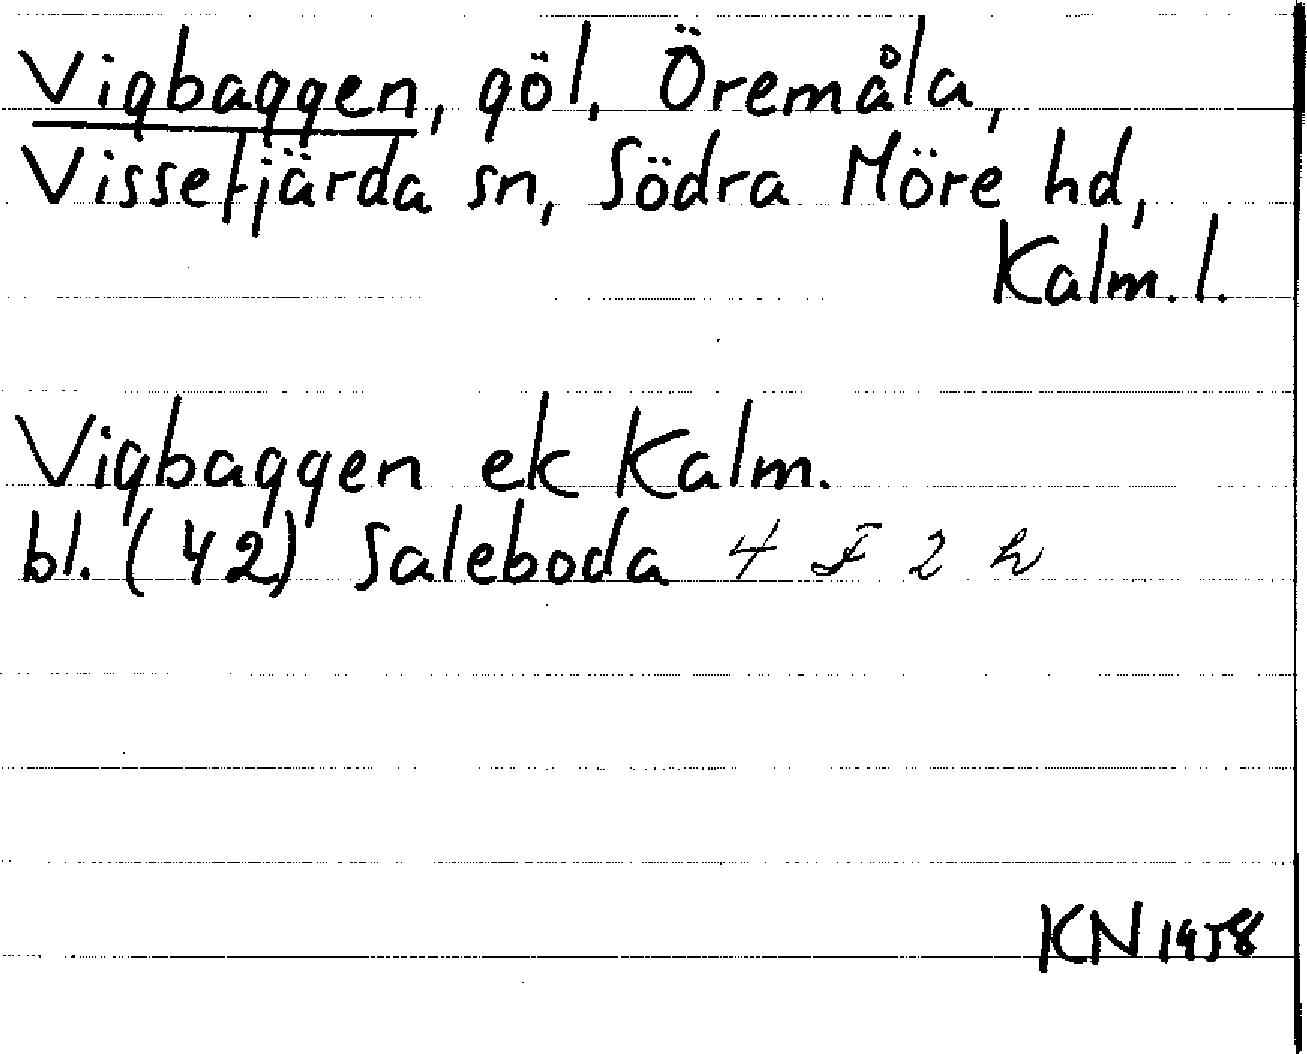 Vigbaggen, göl, Öremåla,
Vissefjärda sn, Södra Möre hd,
Kalm. l.
Vigbaggen ek Kalm.
bl. (42) Saleboda 4 F 2 h
KN 1958